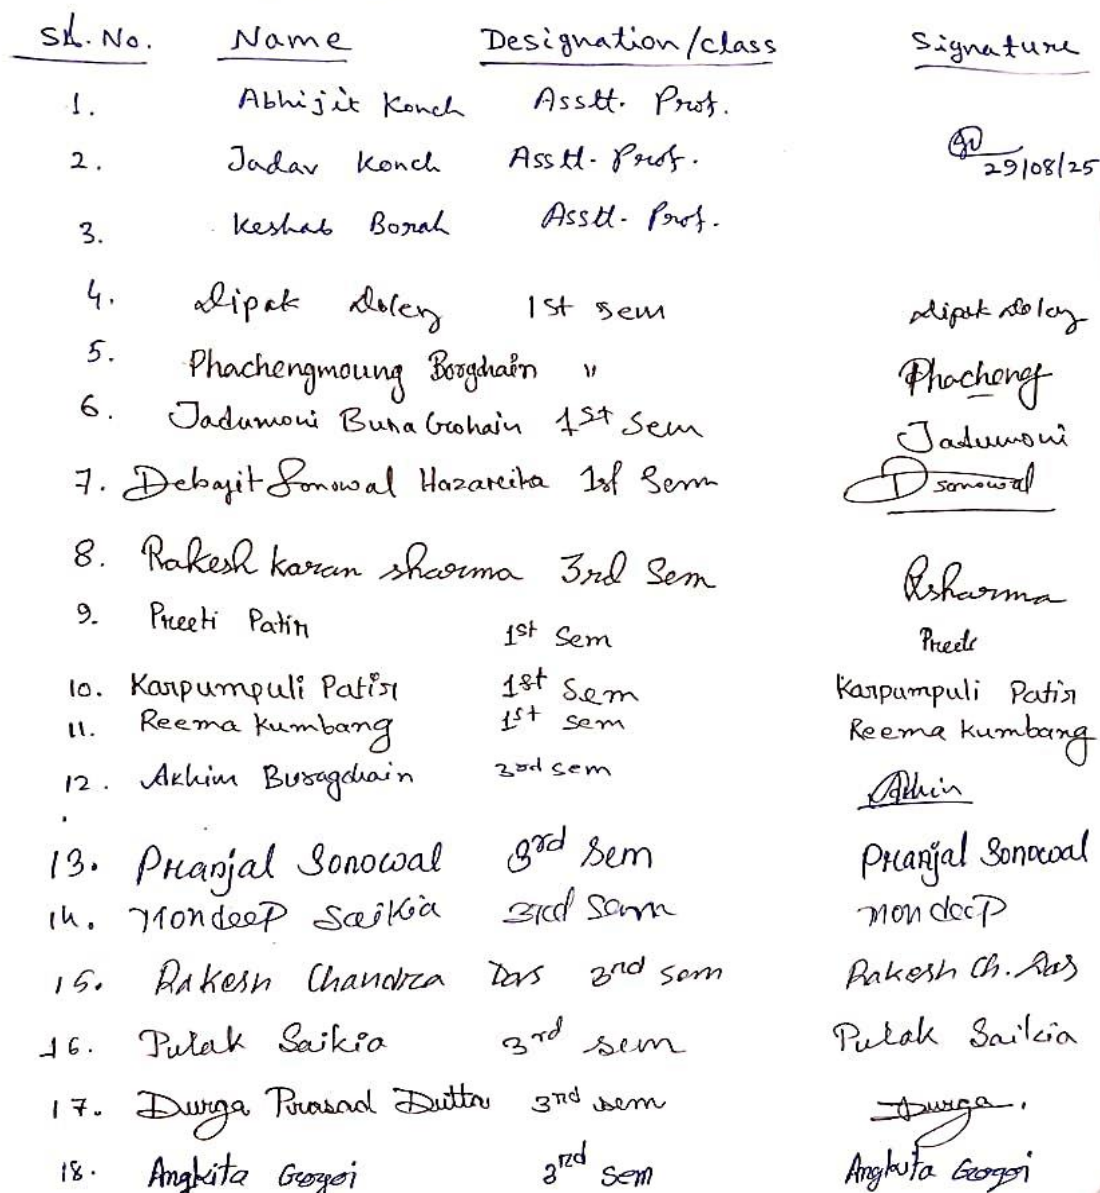 Sl. No. Name Designation/class Signature
1. Abhijit Konch Asstt. Prof.
2. Jadav Konch Asstt. Prof. 29/08/25
3. Keshab Borah Asstt. Prof.
4. Dipak Doley 1st sem Dipak Doley
5. Phachengmoung Borgohain " Phacheng
6. Jadumoni Bura Gohain 1st Sem Jadumoni
7. Debajit Sonowal Hazareika 1st Sem D sonowal
8. Rakesh karan sharma 3rd Sem Rsharma
9. Preeti Patir 1st Sem Preeti
10. Karpumpuli Patir 1st Sem Karpumpuli Patir
11. Reema Kumbang 1st sem Reema Kumbang
12. Akhim Buragohain 3rd sem
13. Pranjal Sonowal 3rd Sem Pranjal Sonowal
14. Mondeep Saikia 3rd Sem Mondeep
15. Rakesh Chandra Das 3rd sem Rakesh Ch. Das
16. Pulak Saikia 3rd sem Pulak Saikia
17. Durga Prasad Dutta 3rd sem Durga.
18. Angkita Gogoi 3rd Sem Angkita Gogoi